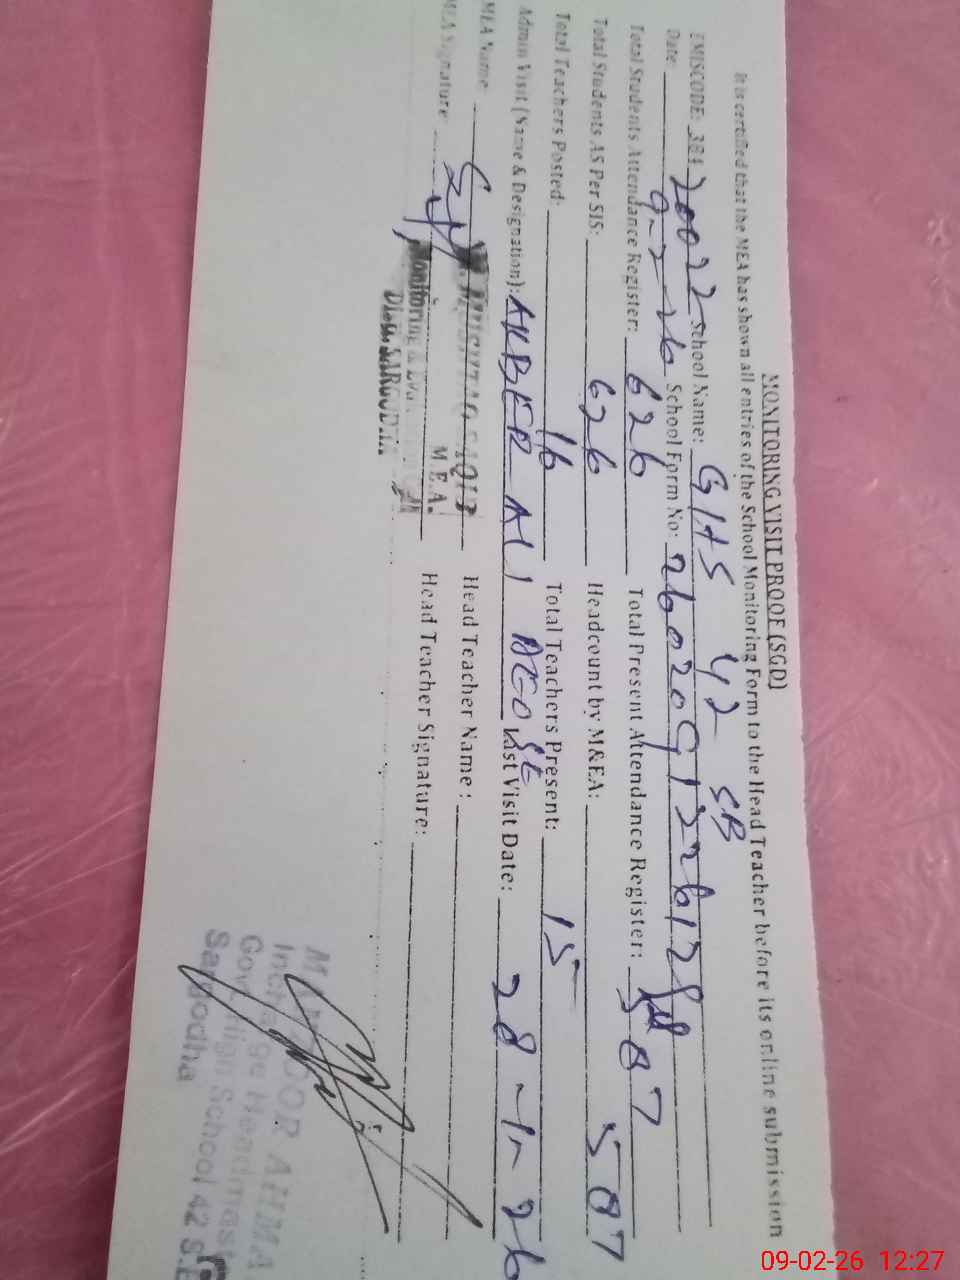 MONITORING VISIT PROOF (SGD)
It is certified that the MEA has shown all entries of the School Monitoring Form to the Head Teacher before its online submission
EMISCODE: 384 20022 School Name: GHS 42 SB
Date: 9-2-26 School Form No:
Total Students Attendance Register: 626 Total Present Attendance Register: 587
Total Students AS Per SIS: 626 Headcount by M&EA: 587
Total Teachers Posted: 16 Total Teachers Present: 15
Admin Visit (Name & Designation): AKBER ALI AEO SE Last Visit Date: 28-1-26
MEA Name: MUSHTAQ Head Teacher Name:
MEA Signature: M.E.A. Head Teacher Signature:
Monitoring &
Distt. SARGODHA
AHMA
Incharge Headmast
Govt. High School 42 S.B
Sargodha
09-02-26 12:27